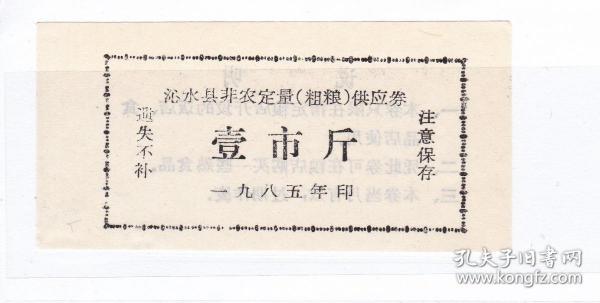 沁水县非农定量(粗粮)供应券
遗失不补
壹市斤
注意保存
一九八五年印
孔夫子旧书网
kongfz.com